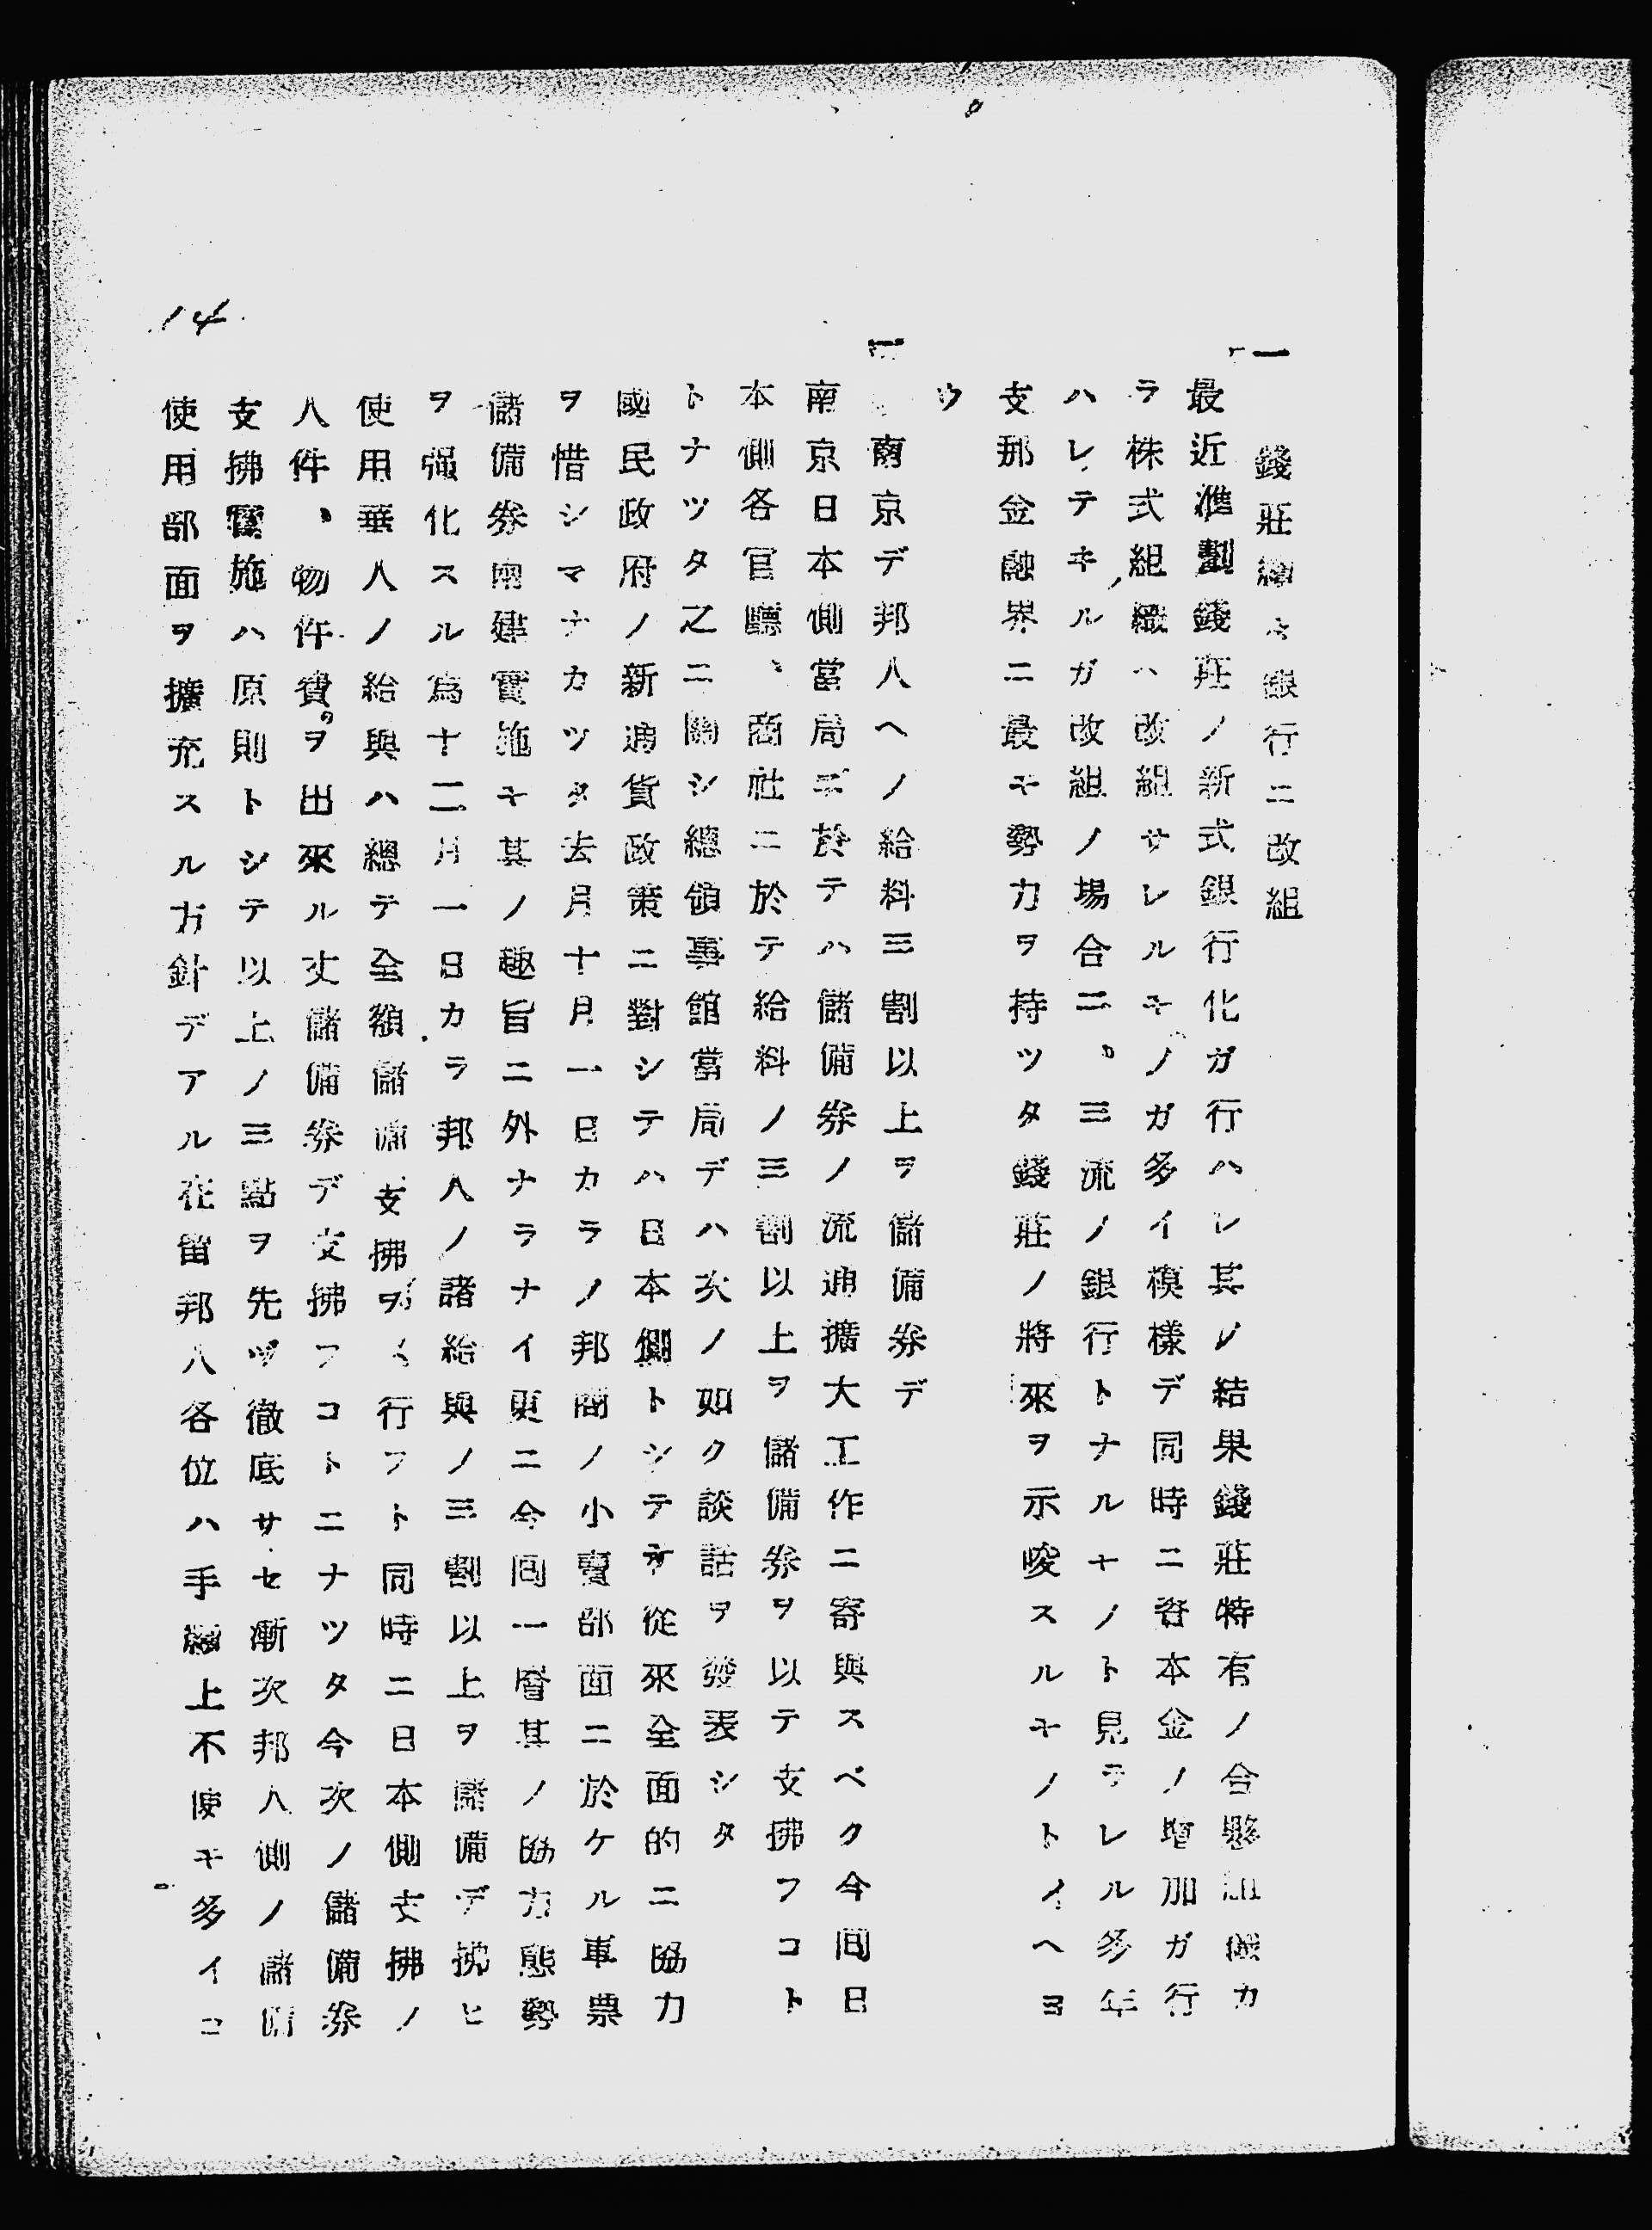 一 錢莊續々銀行ニ改組
最近準劃錢莊ノ新式銀行化ガ行ハレ其ノ結果錢莊特有ノ合夥組織カ
ラ株式組織ハ改組サレルモノガ多イ模樣デ同時ニ資本金ノ增加ガ行
ハレテヰルガ改組ノ場合二、三流ノ銀行トナルモノト見ラレル多年
支那金融界ニ最モ勢力ヲ持ツタ錢莊ノ將來ヲ示唆スルモノトイヘヨ
ウ
一 南京デ邦人ヘノ給料三割以上ヲ儲備券デ
南京日本側當局ニ於テハ儲備券ノ流通擴大工作ニ寄與スベク今囘日
本側各官廳、商社ニ於テ給料ノ三割以上ヲ儲備券ヲ以テ支拂フコト
トナツタ之ニ關シ總領事館當局デハ次ノ如ク談話ヲ發表シタ
國民政府ノ新通貨政策ニ對シテハ日本側トシテモ從來全面的ニ協力
ヲ惜シマナカツタ去月十月一日カラノ邦商ノ小賣部面ニ於ケル軍票
儲備券兩建實施モ其ノ趣旨ニ外ナラナイ更ニ今囘一層其ノ協力態勢
ヲ强化スル爲十二月一日カラ邦人ノ諸給與ノ三割以上ヲ儲備デ拂ヒ
使用華人ノ給與ハ總テ全額儲備支拂ヲ行フト同時ニ日本側支拂ノ
人件、物件費ヲ出來ル丈儲備券デ支拂フコトニナツタ今次ノ儲備券
支拂實施ハ原則トシテ以上ノ三點ヲ先ヅ徹底サセ漸次邦人側ノ儲備
使用部面ヲ擴充スル方針デアル在留邦人各位ハ手續上不便モ多イコ
14